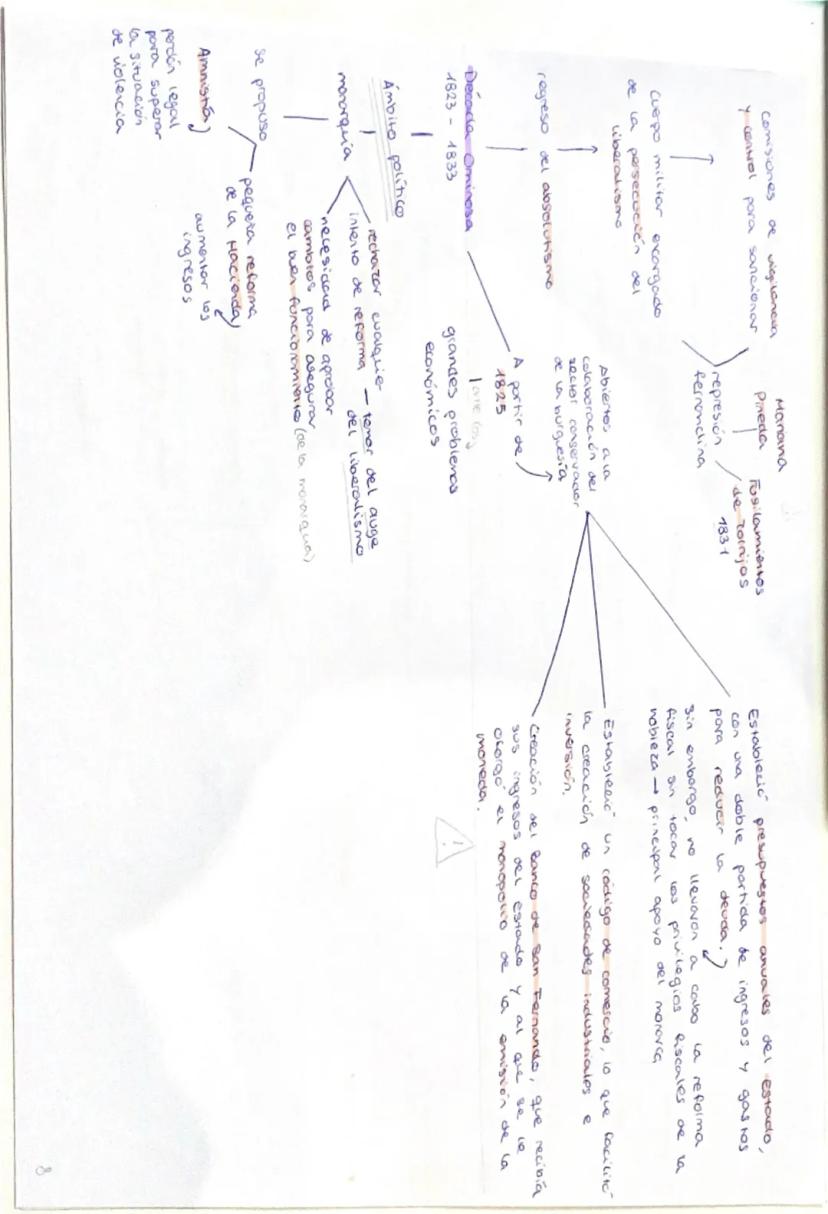 Comisiones de vigilancia
y control para sancionar
Mariana
Pineda
Fusilamientos
de Torrijos
1831
represión
fernandina
Cuerpo militar encargado
de la persecución del
liberalismo
regreso del absolutismo
Década Ominosa
1823 - 1833
A partir de
1825
Abiertos a la
colaboración del
sector conservador
de la burguesía
grandes problemas
económicos
Estableció presupuestos anuales del estado,
con una doble partida de ingresos y gastos
para reducir la deuda.
sin embargo, no llevaron a cabo la reforma
fiscal sin tocar los privilegios fiscales de la
nobleza → principal apoyo del monarca
Estableció un código de comercio, lo que facilitó
la creación de sociedades industriales e
inversión.
Creación del Banco de San Fernando, que recibía
sus ingresos del estado y al que se le
otorgó el monopolio de la emisión de la
moneda.
!
Ámbito político
monarquía
rechazar cualquier
intento de reforma — temor del auge
del liberalismo
necesidad de aprobar
cambios para asegurar
el buen funcionamiento (de la monarquía)
se propuso
Amnistía
perdón legal
para superar
la situación
de violencia
pequeña reforma
de la Hacienda
aumentar los
ingresos
8